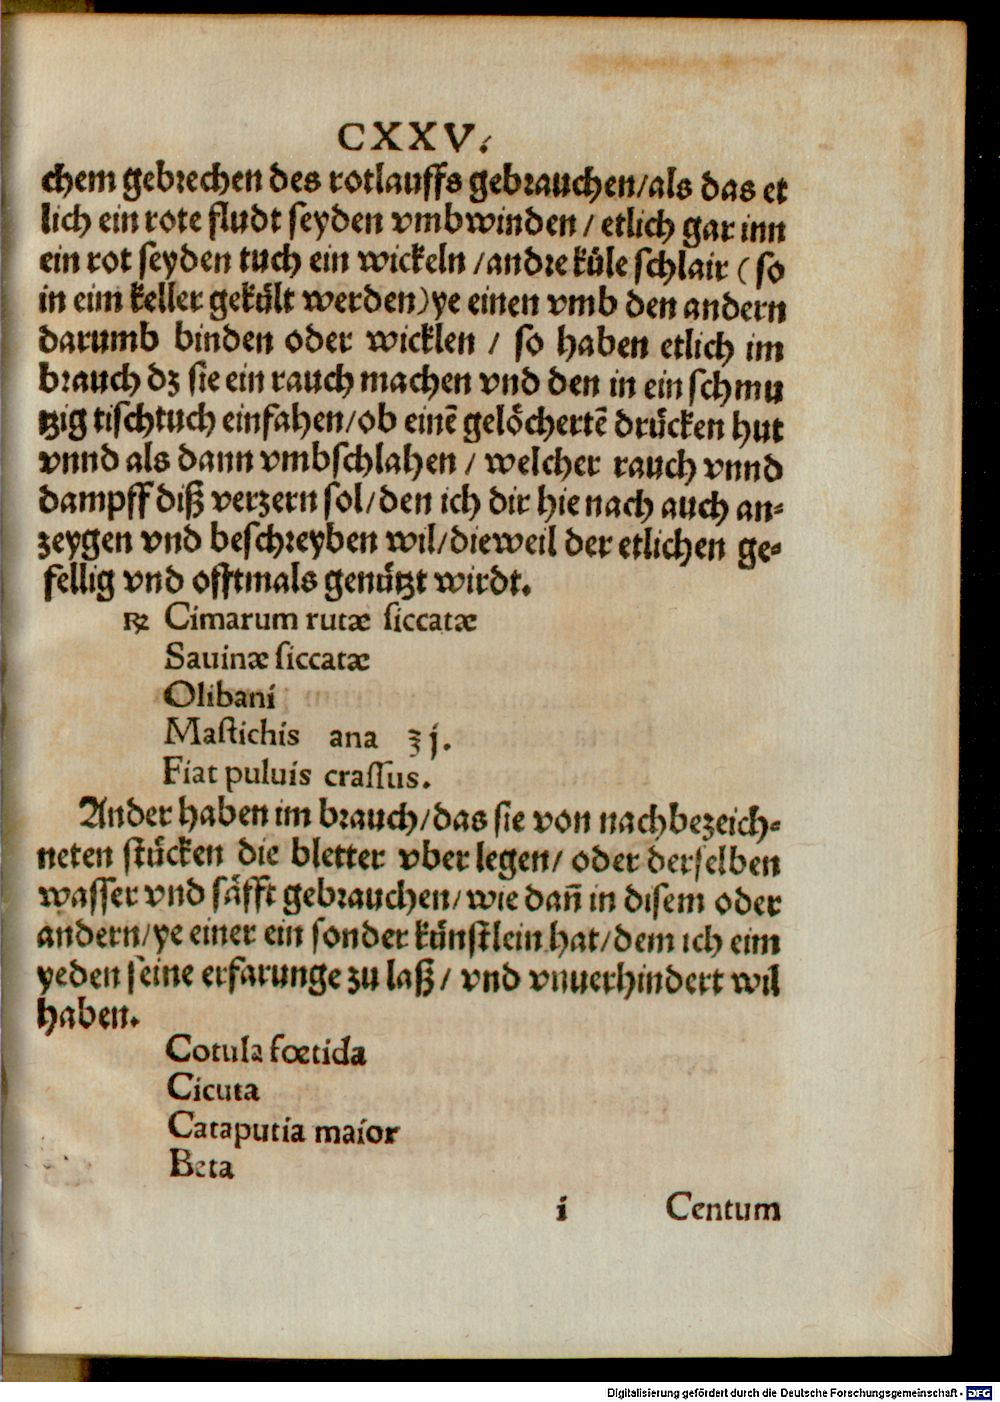 CXXV.
chem gebrechen des rotlauffs gebrauchen/als das et
lich ein rote fludt seyden vmbwinden / etlich gar inn
ein rot seyden tuch ein wickeln /andre küle schlair ( so
in eim keller gekült werden) ye einen vmb den andern
darumb binden oder wicklen / so haben etlich im
brauch dz sie ein rauch machen vnd den in ein schmu
tzig tischtuch einfahen/ob einē gelöchertē drücken hut
vnnd als dann vmbschlahen / welcher rauch vnnd
dampff diß verzern sol/den ich dir hie nach auch an⸗
zeygen vnd beschreyben wil/dieweil der etlichen ge⸗
fellig vnd offtmals genützt wirdt.
℞ Cimarum rutæ siccatæ
Sauinæ siccatæ
Olibani
Mastichis ana ʒ j.
Fiat puluis crassus.
Ander haben im brauch/das sie von nachbezeich⸗
neten stücken die bletter vber legen/ oder derselben
wasser vnd säfft gebrauchen/wie dañ in disem oder
andern/ye einer ein sonder künstlein hat/dem ich eim
yeden seine erfarunge zu laß / vnd vnuerhindert wil
haben.
Cotula fœtida
Cicuta
Cataputia maior
Beta
i Centum
Digitalisierung gefördert durch die Deutsche Forschungsgemeinschaft - DFG